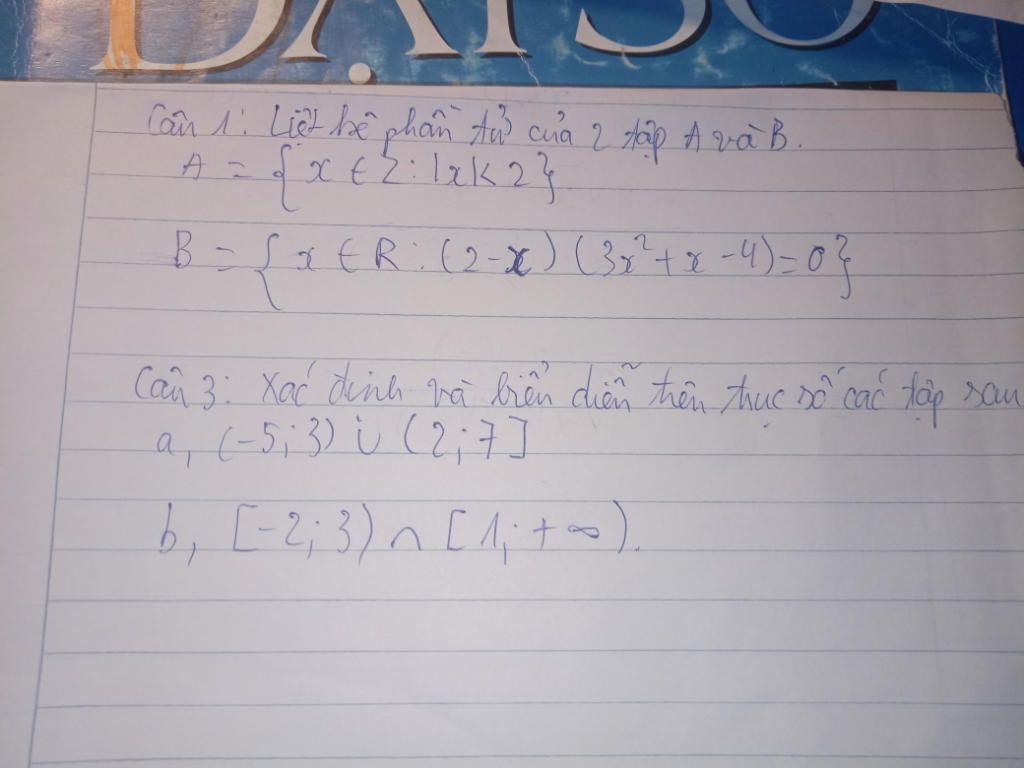 ĐẠI SỐ
Câu 1: Liệt kê phần tử của 2 tập A và B.
A = { x ∈ Z : |x| < 2 }
B = { x ∈ R : (2-x) (3x²+x-4)=0 }
Câu 3: Xác định và biểu diễn trên trục số các tập sau
a, (-5; 3) ∪ (2; 7]
b, [-2; 3) ∩ [1; +∞).